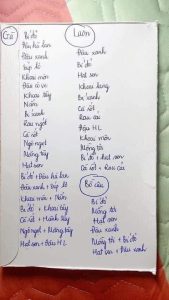 Gà
Bí đỏ
Đậu hà lan
Đậu xanh
Súp lơ
Khoai môn
Đậu cô ve
Khoai tây
Nấm
Bí xanh
Rau ngót
Cà rốt
Ngô ngọt
Măng tây
Hạt sen
Bí đỏ + Đậu hà lan
Đậu xanh + Súp lơ
Khoai môn + Nấm
Bí đỏ + Khoai tây
Cà rốt + Hành tây
Ngô ngọt + Măng tây
Hạt sen + Đậu HL
Lươn
Đậu xanh
Bí đỏ
Hạt sen
Khoai môn
Khoai lang
Bí xanh
Cà rốt
Rau cải
Đậu HL
Khoai môn
Mồng tơi
Bí đỏ + hạt sen
Cà rốt + Rau cải
Bồ câu
Bí đỏ
Mồng tơi
Hạt sen
Đậu xanh
Mồng tơi + Bí đỏ
Hạt sen + Đậu xanh